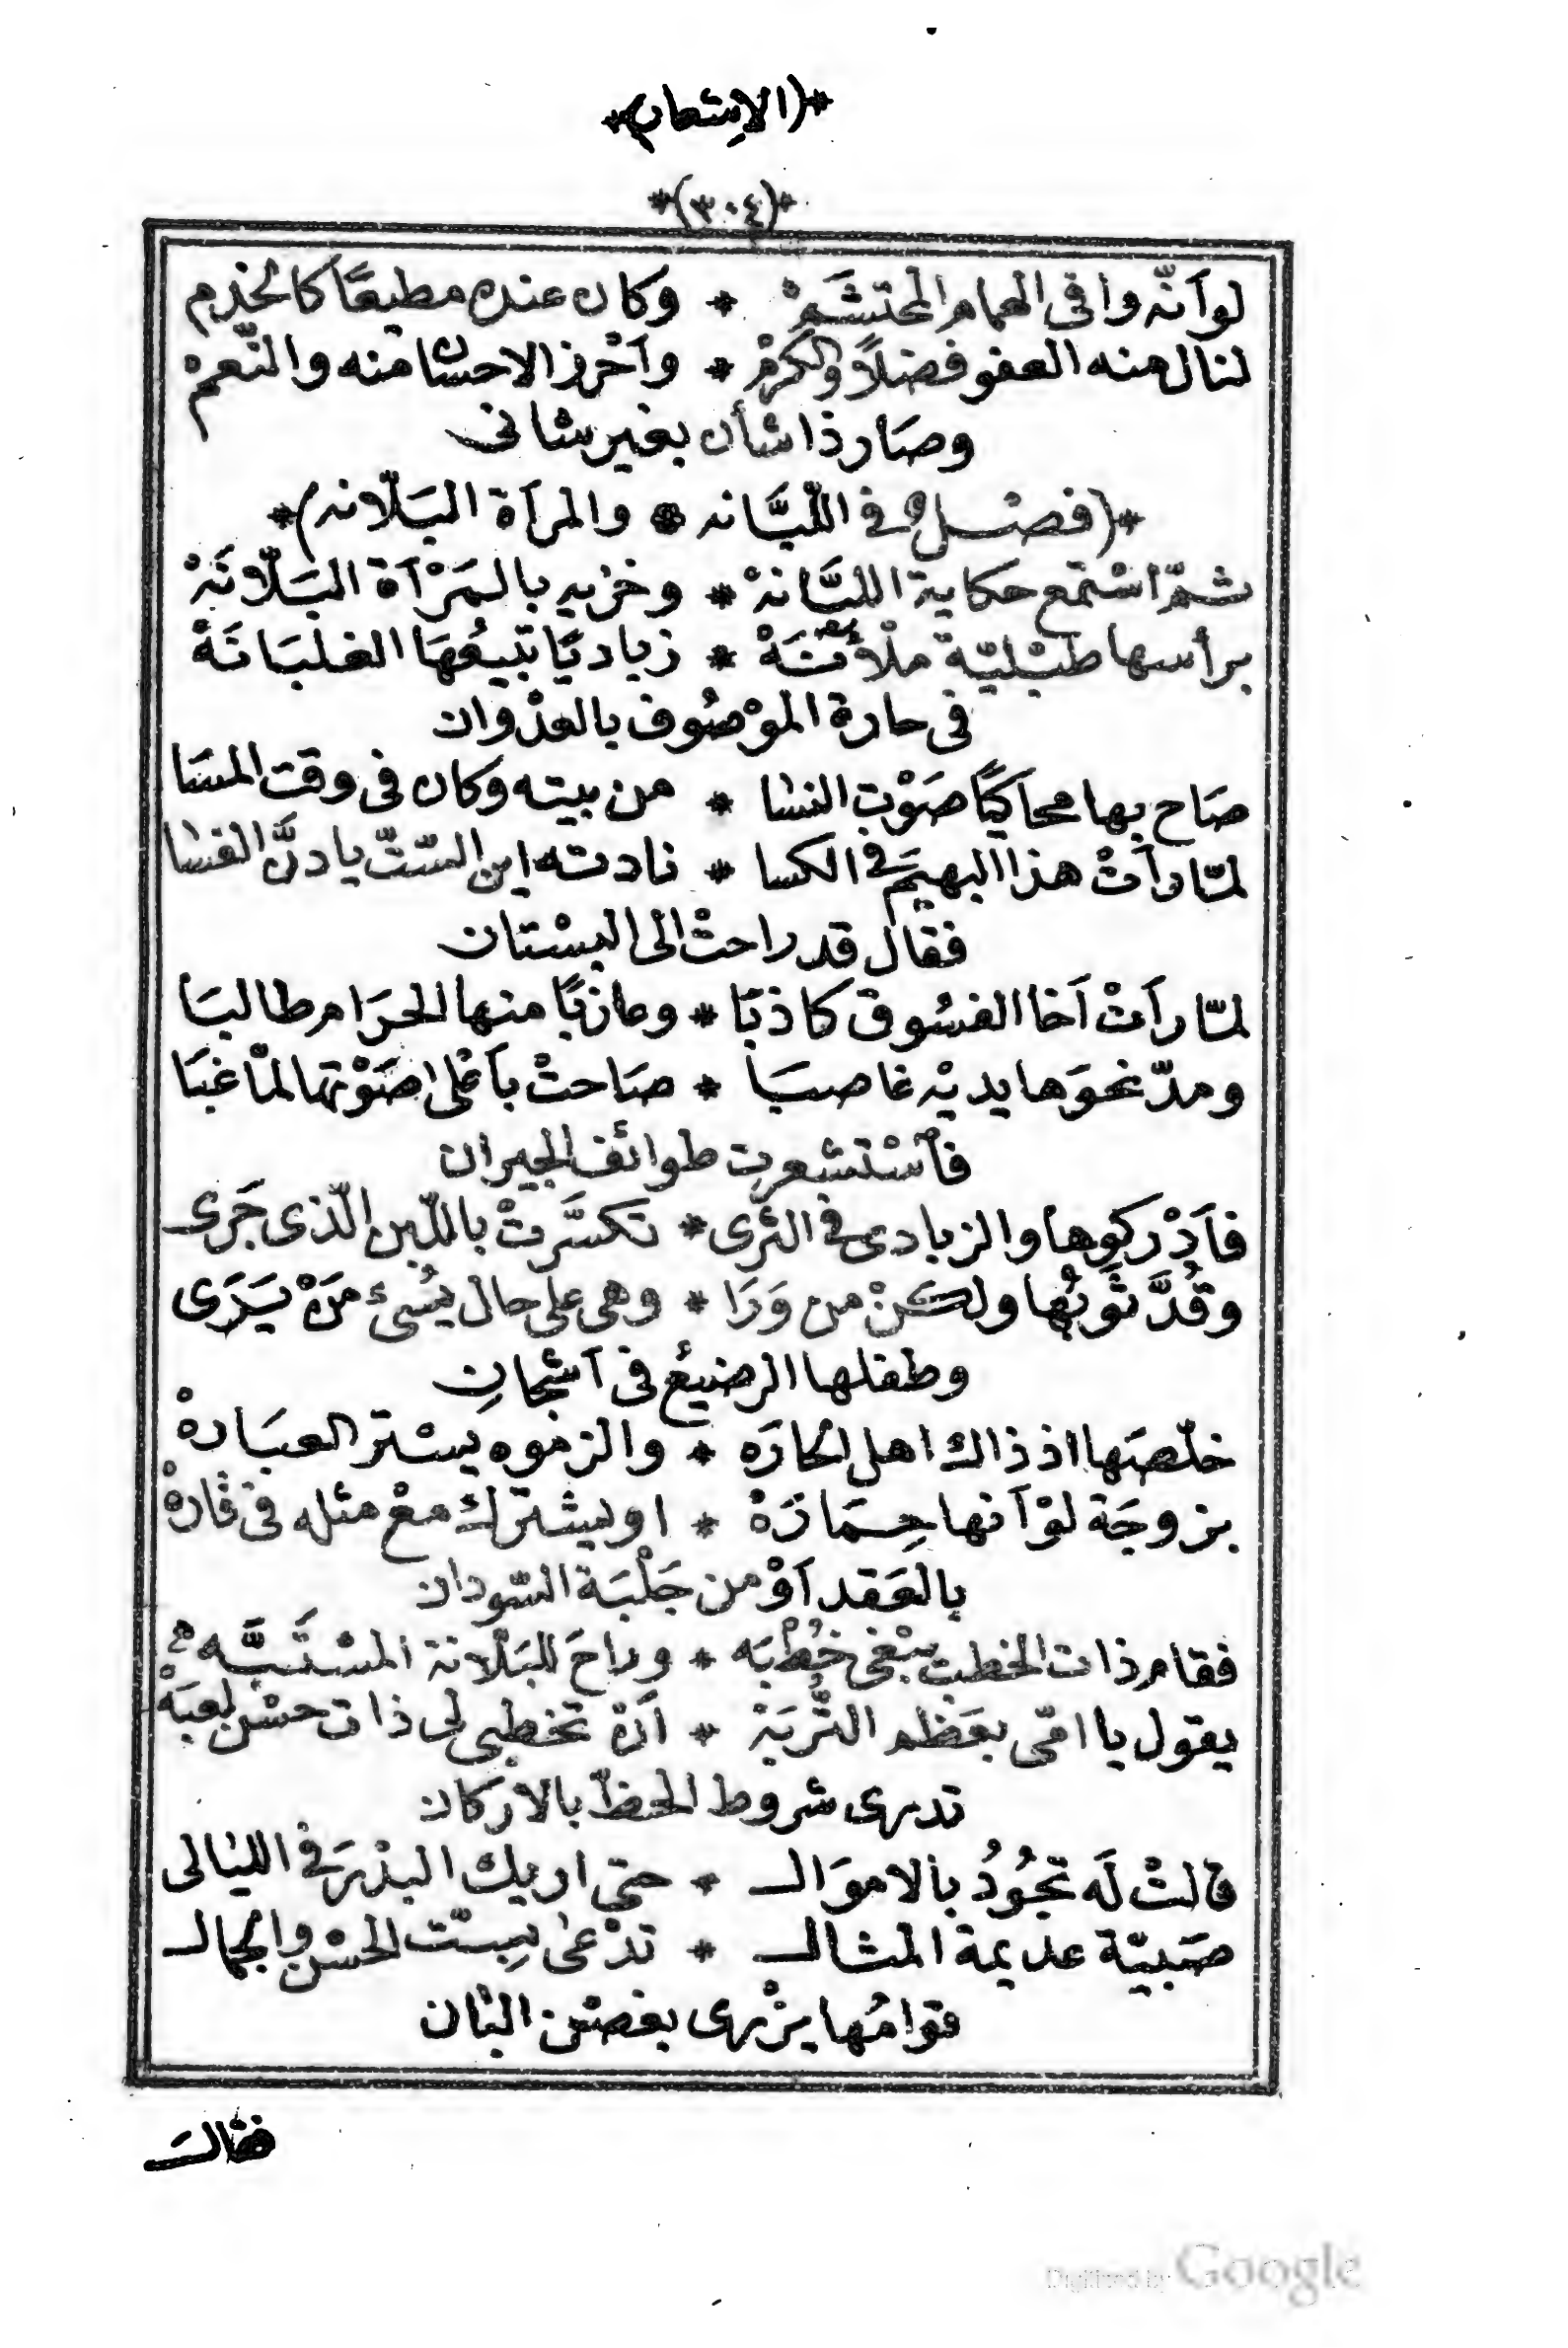 *(الاشعار)*
*(٣٠٤)*
لو آنّه وافى الهمام المحتشَمْ * وكان عنده مطيعًا كالخدم
لنال منه العفو فضلاً والكرمْ * وآحْرز الاحسان منه والنّعمْ
وصَار ذا شأن بغير شانى
*(فصْل فى اللّبَّانه * والمرآة البَلّانه)*
ثمّ اسْتمع حكاية اللبَّانهْ * وخزيه بالمَرْآة البَلّانَهْ
برأسها طبْليّة ملْآنَهْ * زباديًا تبيعُهَا الغلبَانَهْ
فى حارة الموْصُوف بالعدْوان
صَاح بها محاكيًا صَوْت النسا * من بيته وكان فى وقت المسَا
لمّا رآتْ هذا البهيَم فى الكسا * نادته اين السّتّ يا دنَّ الفسا
فقال قد راحتْ الى البسْتان
لمّا رآتْ آخا الفسُوق كاذبَا * وعازبًا منها الحرَام طالبَا
ومدّ نحوَها يديْه غاصبَا * صَاحتْ بآعْلى صَوْتها لمّا غبَا
فآسْتشعرت طوائف الجيران
فآدْركوها والزبادى فى الثّرى * تكسَّرتْ باللّبن الّذى جَرى
وقُدَّ ثَوبُها ولكنْ من وَرَا * وهى على حال يُسئ مَنْ يَرَى
وطفلها الرضيعُ فى آشجانِ
خلّصَها اذ ذاك اهل الحارَه * والزموه يسْتر العبَارهْ
بزوجَة لوْ آنها حِمَارَهْ * او يشترك معْ مثله فى فارهْ
بالعَقد آوْ من جَلْبَة السّودان
فقام ذات الخطب يبْغى خُطْبَه * وراحَ للبَلّانة المسْتَبَّه
يقول يا امّى بعَظم التُّربَهْ * آنْ تخطبى لى ذات حسْن لعبَهْ
تدرى شروط الحظّ بالاركان
قالتْ لَه تجُودُ بالاموَال * حتى اريك البدْرَ فى الليالى
صَبيّة عديمة المثال * تدْعى بِستّ الحسْن والجمال
قوامُها يزْرى بغصْن البان
فقال
Digitized by Google